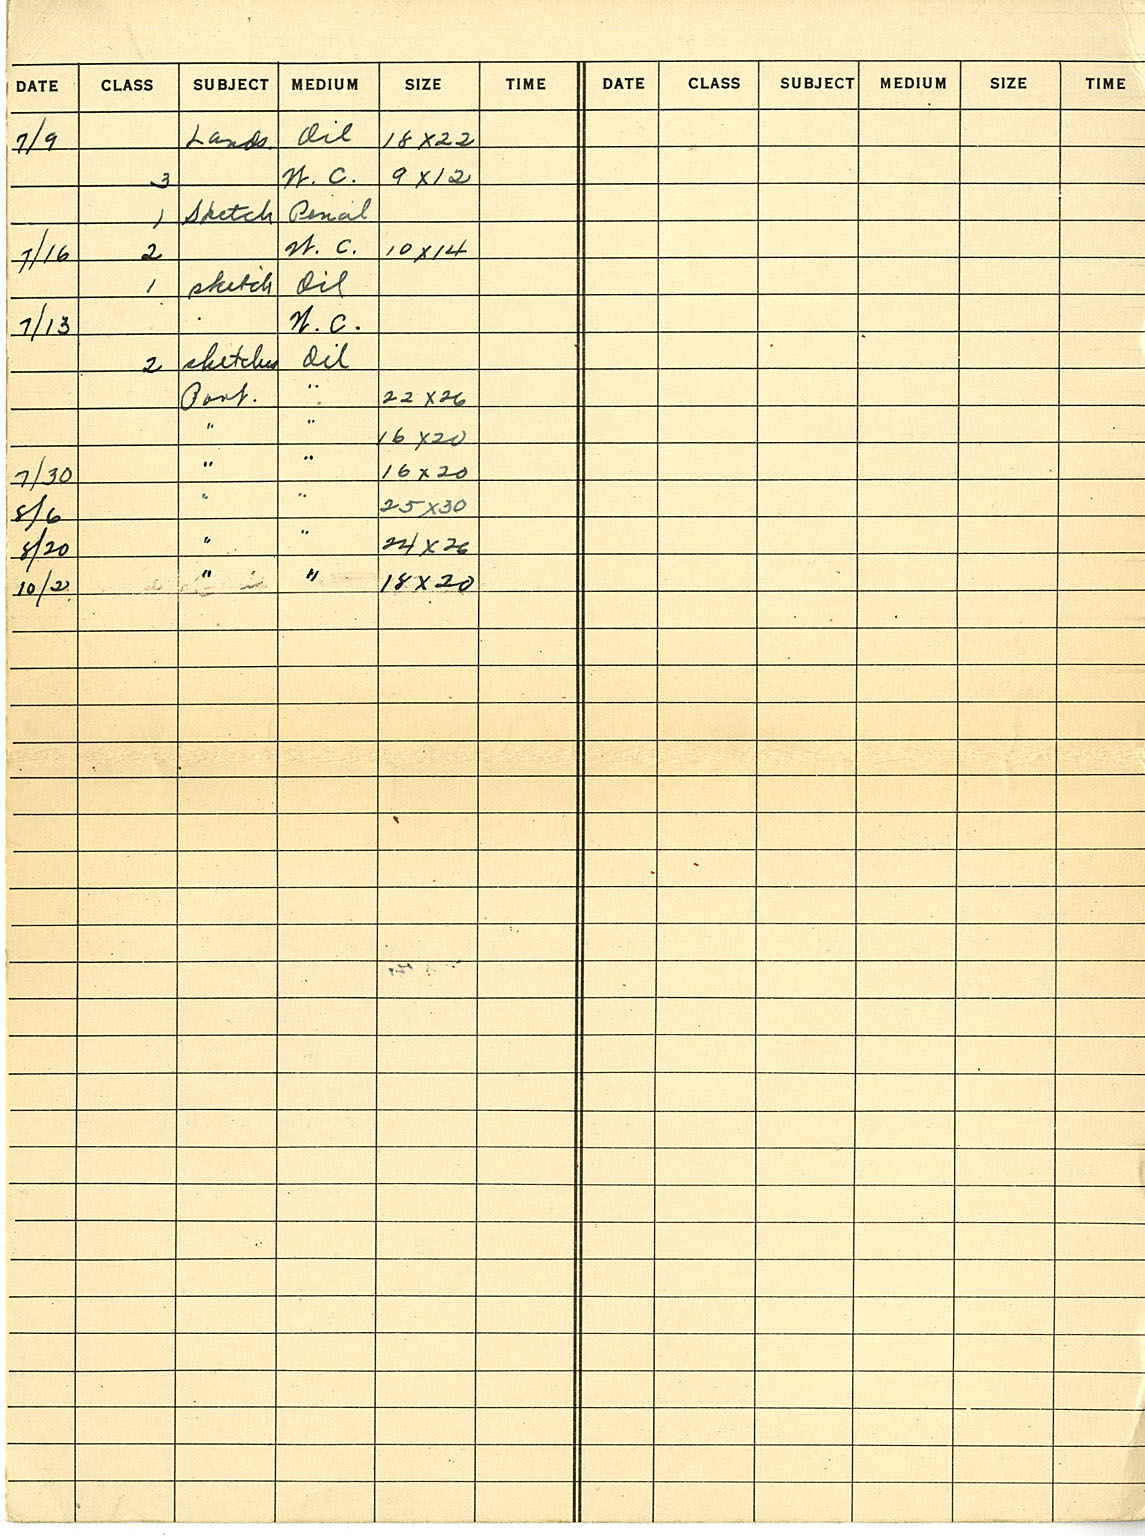 DATE CLASS SUBJECT MEDIUM SIZE TIME DATE CLASS SUBJECT MEDIUM SIZE TIME
7/9 Lands. Oil 18x22
3 W. C. 9x12
1 Sketch Pencil
7/16 2 W. C. 10x14
1 sketch Oil
7/13 W. C.
2 sketches Oil
Port. " 22x26
" " 16x20
7/30 " " 16x20
8/6 " " 25x30
8/20 " " 24x26
10/2 " " 18x20